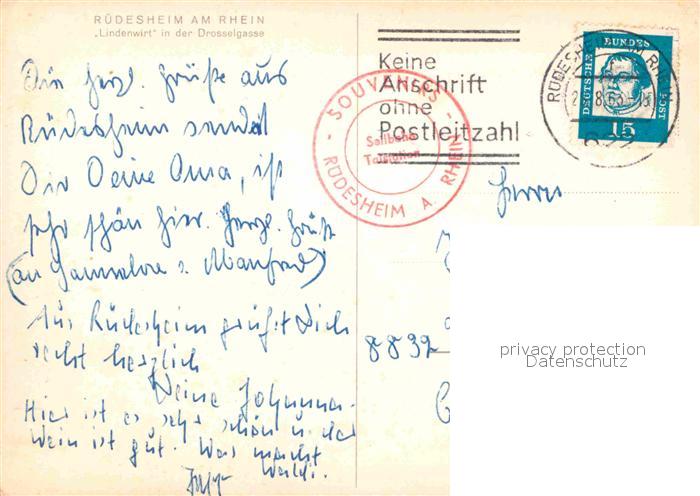 RÜDESHEIM AM RHEIN
„Lindenwirt" in der Drosselgasse
Keine
Anschrift
ohne
Postleitzahl
SOUVENIRS
Seilbahn
Talstation
RÜDESHEIM A. RHEIN
RÜDESHEIM AM RHEIN
DEUTSCHE BUNDESPOST
15
Die herzl. Grüße aus
Rüdesheim sendet
Dir Deine Oma, ist
sehr schön hier. Herzl. Grüße
(an Hannelore u. Manfred)
Aus Rüdesheim grüßt Dich
recht herzlich
Deine Johanna.
Hier ist es sehr schön u. der
Wein ist gut. Was macht
Waldi.
Herrn
8832
privacy protection
Datenschutz